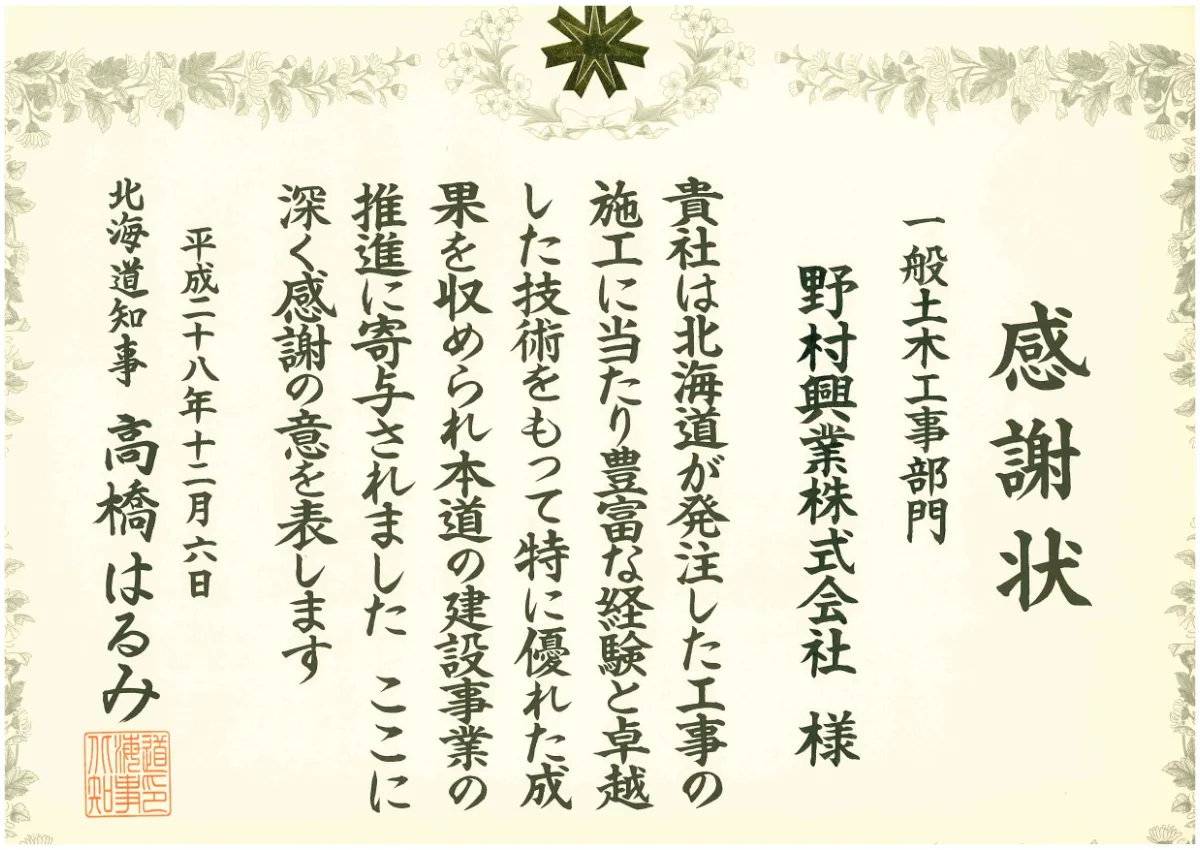 感謝状
一般土木工事部門
野村興業株式会社 様
貴社は北海道が発注した工事の
施工に当たり豊富な経験と卓越
した技術をもって特に優れた成
果を収められ本道の建設事業の
推進に寄与されました ここに
深く感謝の意を表します
平成二十八年十二月六日
北海道知事 高橋はるみ
北海道知事印